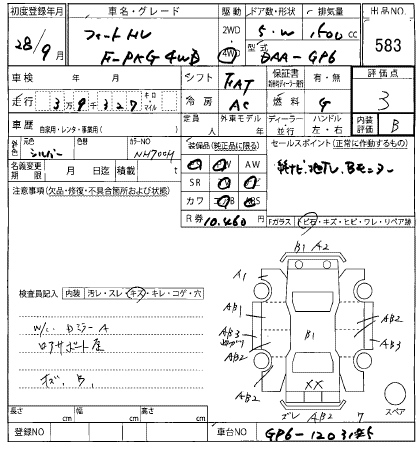 初度登録年月 車名・グレード 駆動 ドア数・形状 排気量 出品NO.
28/9月 フィットHV 2WD 5.W 1500 cc 583
F-PKG 4WD 4WD 型式 DAA-GP6
車検 年 月 シフト FAT 保証書 有・無 評価点
走行 3万9千327 キロ・マイル 冷房 AC 燃料 G 3
車歴 自家用・レンタ・事業用( ) 定員 外車モデル 年 ディーラー 並行 ハンドル 左・右 内装評価 B
外色 元色 シルバー 色替 カラーNO NH700M 装備品(純正品に限る) セールスポイント(正常に作動するもの)
名義変更期限 月 日迄 積載 t AW 純ナビ、地TV、Bモニター
注意事項(欠品・修復・不具合箇所および状態) SR
カワ ABS
R券 10.460円 Fガラス トビ石・キズ・ヒビ・ワレ・リペア跡
B1 A2
A1 AB1
検査員記入 内装 汚レ・スレ・キズ・キレ・コゲ・穴
AB1 AB2
W/C Dミラー A AB3 B1 AB3
リアサポート歪 AB2 AB2
キズ、B、
XX
スペア
ズレ AB2 7
長さ cm 幅 cm 高さ cm
登録NO 車台NO GP6-120